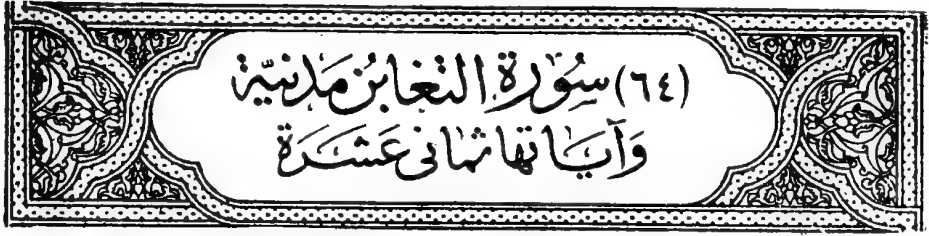 (٦٤) سُورَة التغابن مَدنيّة
وَآيَاتها ثمانى عَشَرَة